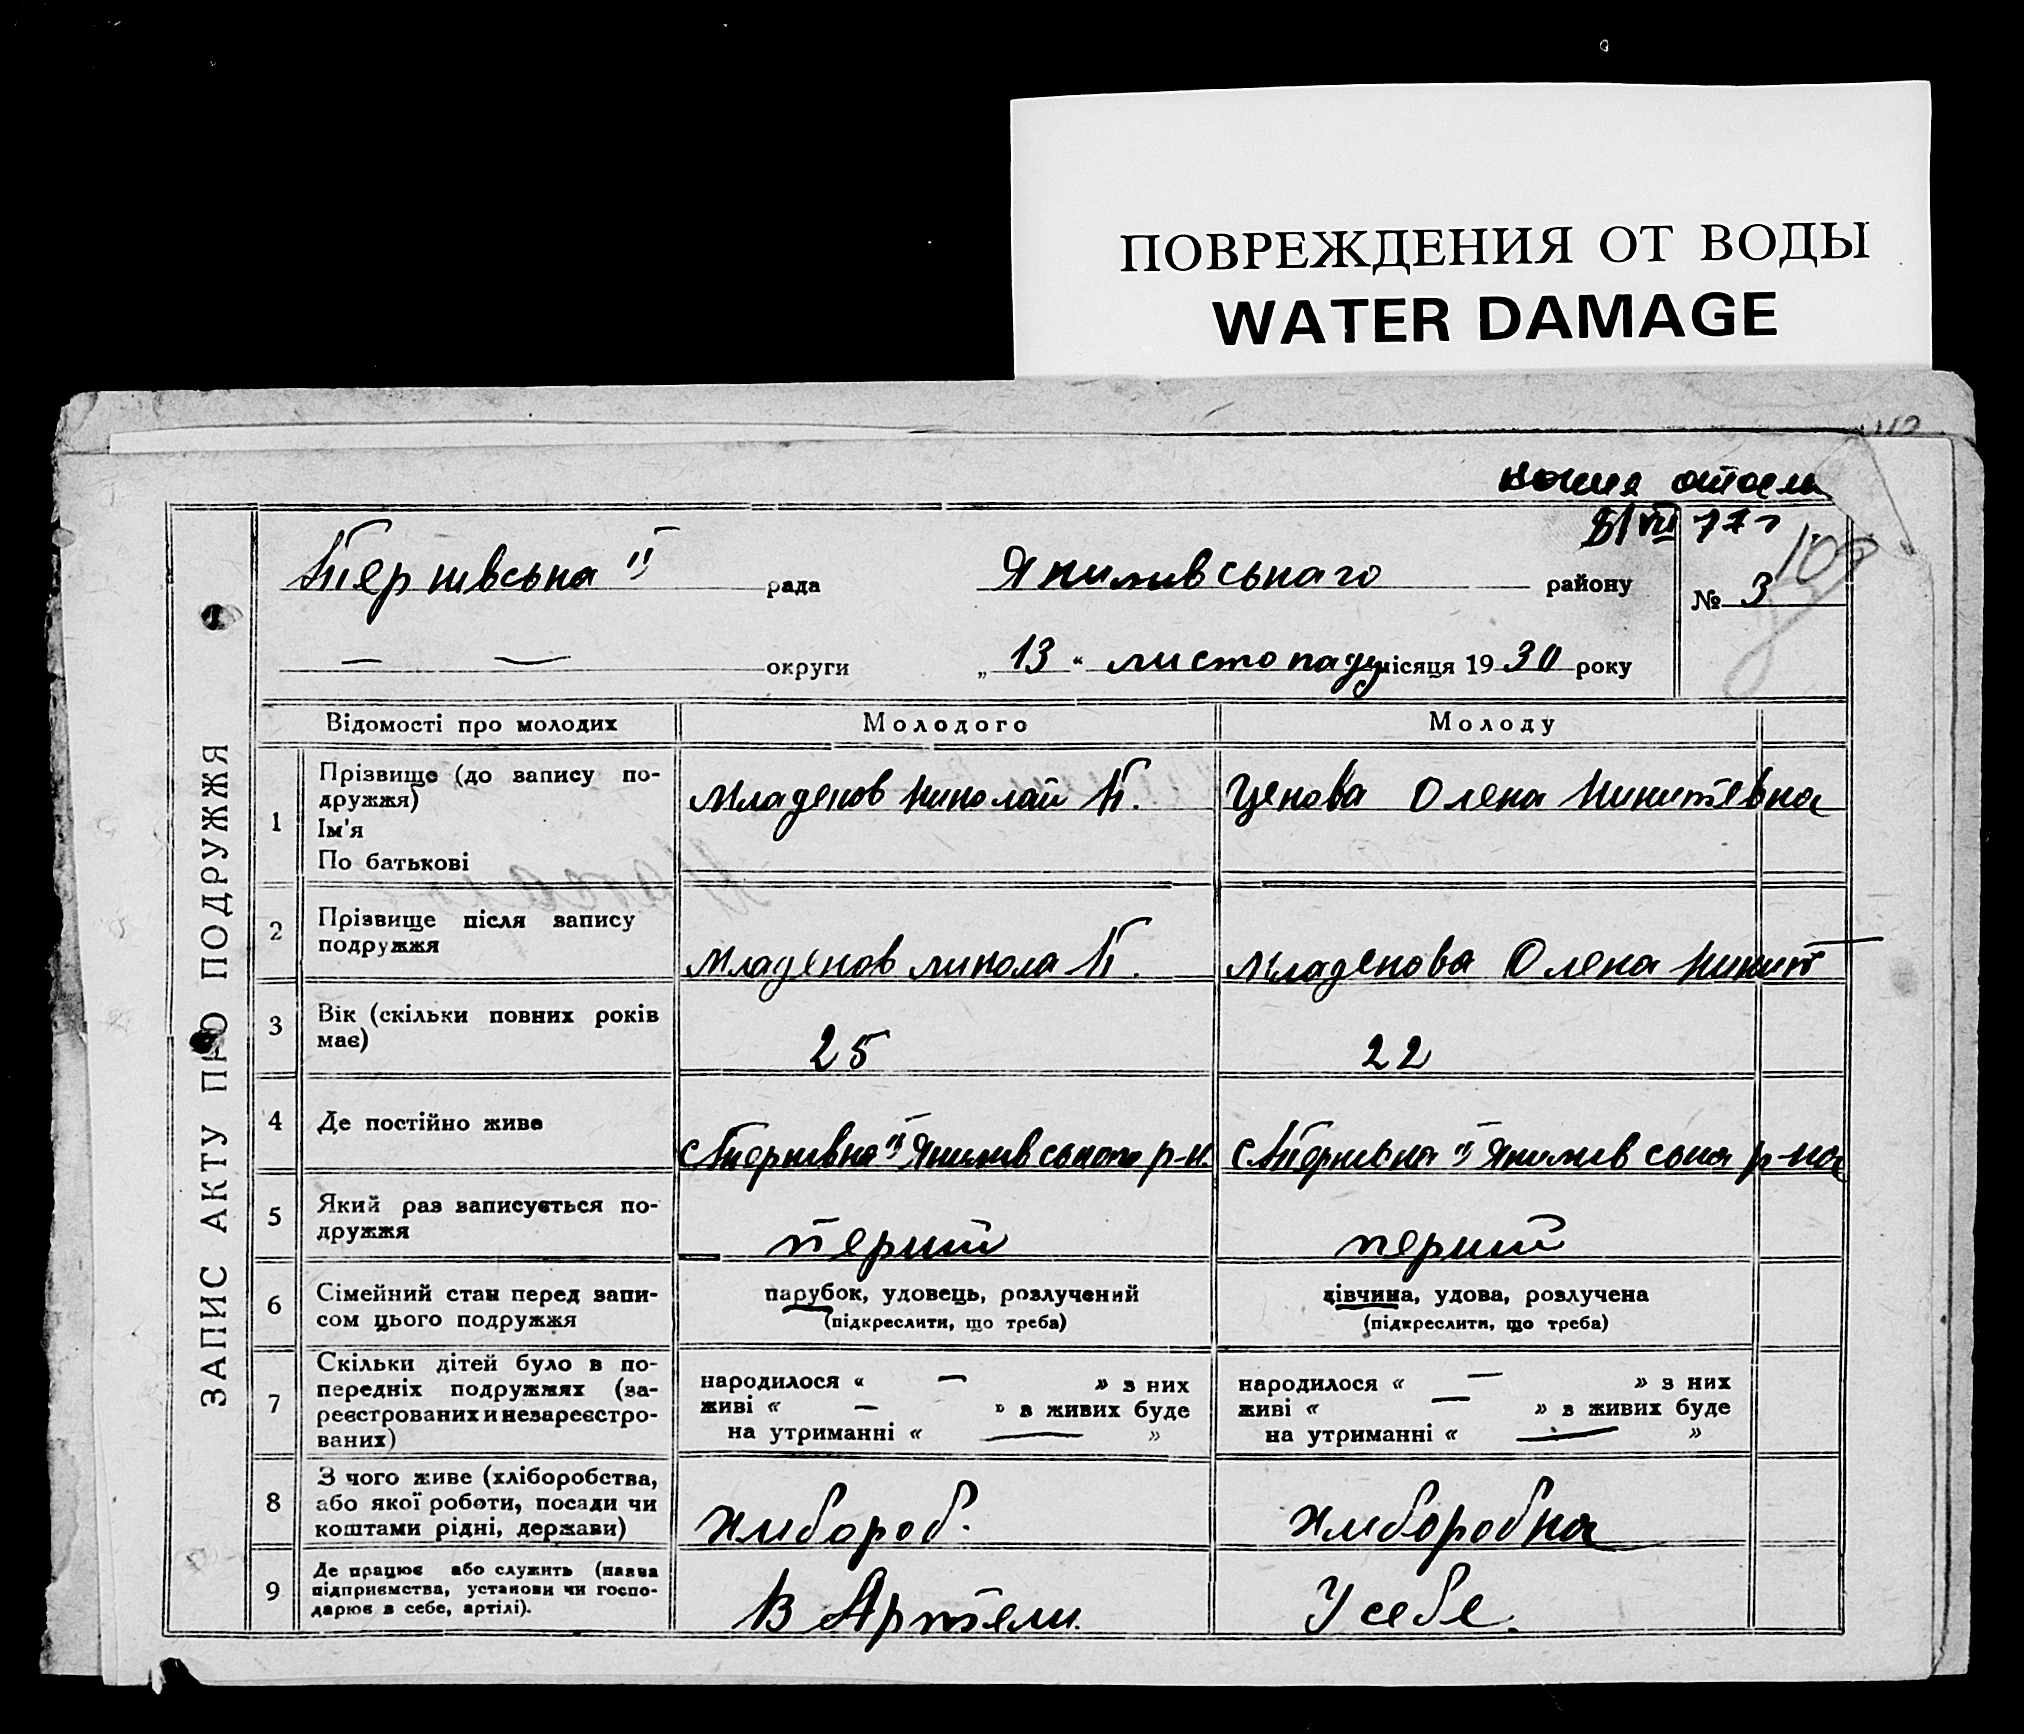 ПОВРЕЖДЕНИЯ ОТ ВОДЫ
WATER DAMAGE
VII 77г
109
Тернівська ІІ рада Якимівського району № 3
— — округи „ 13 “ листопаду місяця 1930 року
ЗАПИС АКТУ ПРО ПОДРУЖЖЯ
Відомості про молодих Молодого Молоду
1 Прізвище (до запису по-
дружжя)
Ім'я
По батькові
Младенов Николай П. Ценова Олена Никитевна
2 Прізвище після запису
подружжя
Младенов Микола П. Младенова Олена Никит
3 Вік (скільки повних років
має)
25 22
4 Де постійно живе
Якимівського р-н. Якимівська р-на
5 Який раз записується по-
дружжя
перший перший
6 Сімейний стан перед запи-
сом цього подружжя
парубок, удовець, розлучений дівчина, удова, розлучена
(підкреслити, що треба) (підкреслити, що треба)
7 Скільки дітей було в по-
передніх подружжях (за-
реєстрованих и незареєстро-
ваних)
народилося « — » з них народилося « — » з них
живі « — » з живих буде живі « — » з живих буде
на утриманні « — » на утриманні « — »
8 З чого живе (хліборобства,
або якої роботи, посади чи
коштами рідні, держави)
хлибороб. хлиборобка
9 Де працює або служить (назва
підприємства, установи чи госпо-
дарює в себе, артілі).
В Артели. У себе.